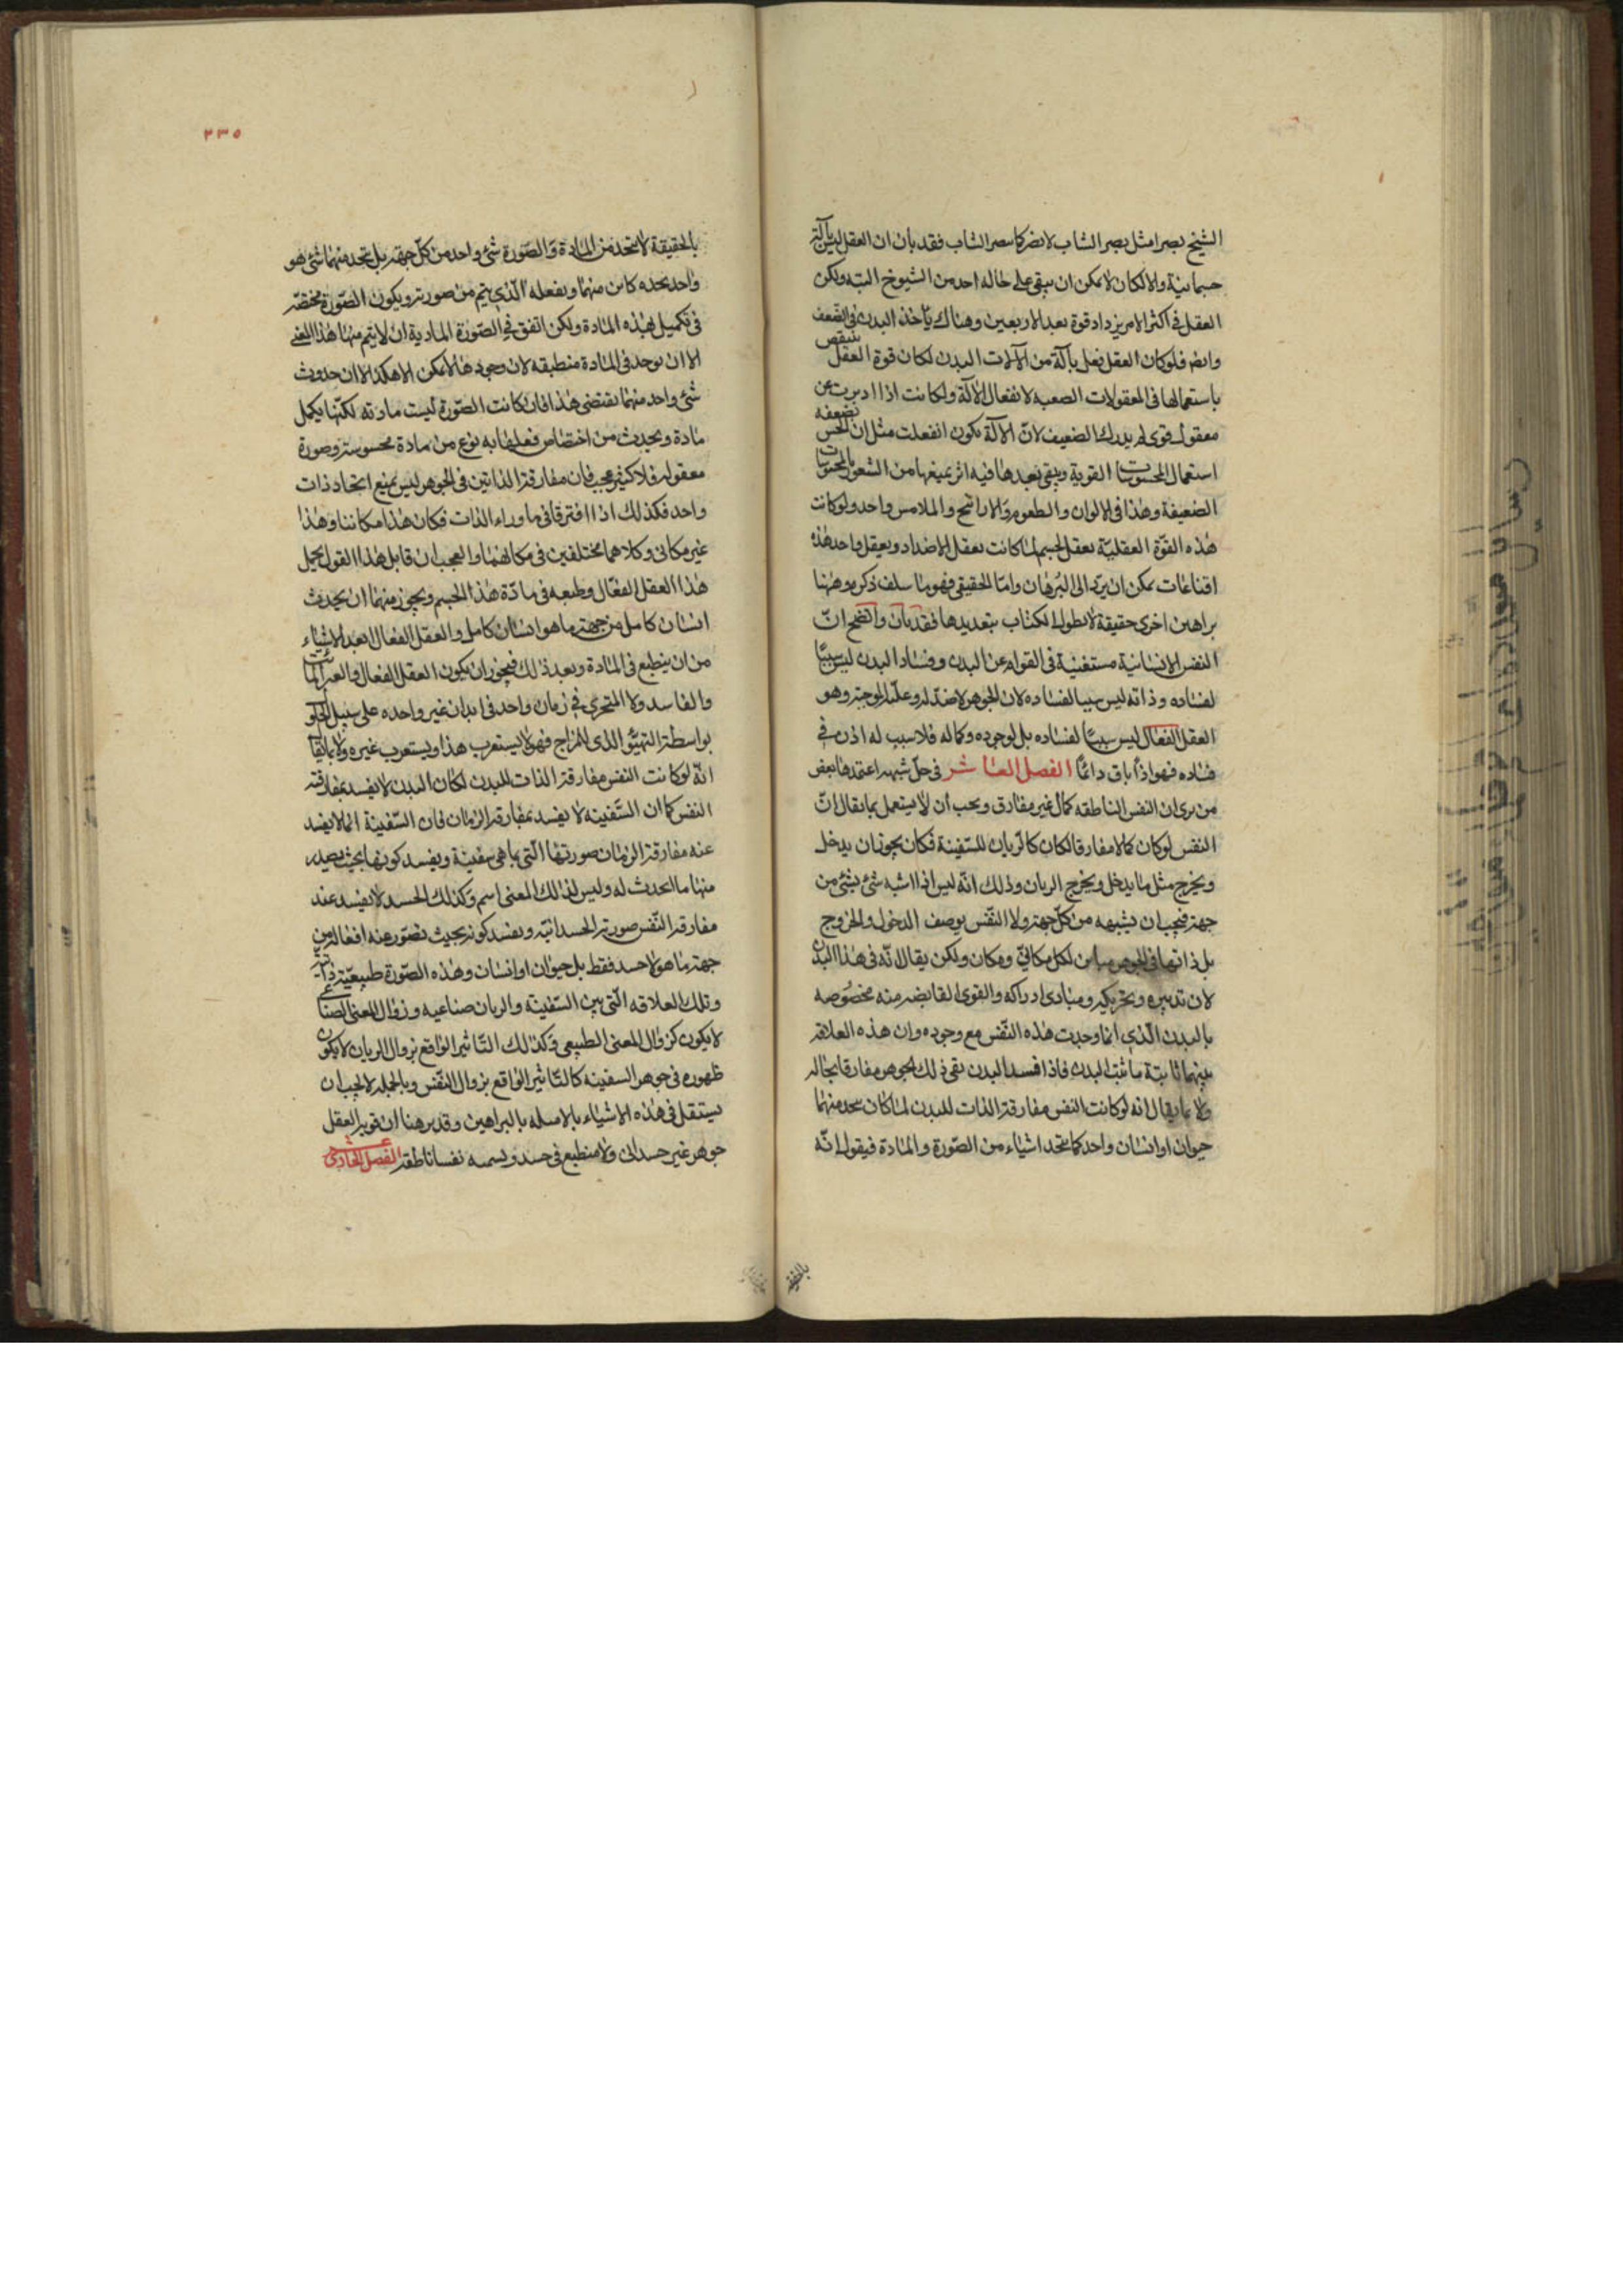 الشيخ بصرا مثل بصر الشاب لابصر كما يبصر الشاب فقد بان ان العقل ليس بآلة
جسمانية والا لكان لا يمكن ان يبقى على حاله احد من الشيوخ البته ولكن
العقل فى اكثر الامر يزداد قوة بعد الاربعين وهناك يأخذ البدن فى الضعف
وايضا فلو كان العقل يعقل بآلة من الآلات البدن لكان قوة العقل تنقص
باستعمالها فى المعقولات الصعبه لانفعال الآلة ولكانت اذا ادبرت عن
معقول قوى لم يدرك الضعيف لانّ الآلة تكون انفعلت مثل ان الحس تضعفه
استعمال المحسوسات القوية ويبقى بعدها فيه اثر يمنعها من الشعور بالمحسوسات
الضعيفة وهذا فى الالوان والطعوم والاراييح والملامس واحد ولو كانت
هذه القوّة العقليّة تعقل بالجسم لما كانت تعقل الاضداد ويعقل واحد هذه
اقناعات يمكن ان يردّ الى البرهان وامّا الحقيقى فهو ما سلف ذكره وههنا
براهين اخرى حقيقة لا نطول الكتاب بتعديدها فقد بان واتضح انّ
النفس الانسانية مستغنية فى القوام عن البدن وفساد البدن ليس سببًا
لفساده وذاته ليس سببا لفساده لان الجوهر لا ضدّ له وعلّته الموجبة وهو
العقل الفعال ليس سببًا لفساده بل لوجوده وكماله فلا سبب له اذن فى
فساده فهو اذًا باق دائمًا الفصل العاشر فى حلّ شبهه اعتمدها بعض
من يرى ان النفس الناطقه كمال غير مفارق ويجب أن لا يستعمل بما يقال انّ
النفس لو كان كمالا مفارقا لكان كالربان للسّفينة فكان يجوز ان يدخل
ويخرج مثل ما يدخل ويخرج الربان وذلك انّه ليس اذا اشبه شئ بشئ من
جهة فيجب ان يشبهه من كلّ جهة ولا النّفس يوصف الدخول والخروج
بل ذاتها فى الجوهر مباين لكل مكانىّ ومكان ولكن يقال انّه فى هذا البدن
لان تدبيره وتحريكه ومبادى ادراكه والقوى الفايضه منه مخصُوصه
بالبدن الّذى انما وجدت هذه النّفس مع وجوده وان هذه العلاقه
بينهما ثابتة ما ثبت البدن فاذا فسد البدن بقى ذلك الجوهر مفارقا بحاله
ولا بما يقال انه لو كانت النفس مفارقة الذات للبدن لما كان يتحد منهما
حيوان او انسان واحد كما يتحد اشياء من الصّورة والمادة فيقول انّه
بالحقيقة
٢٣٥
بالحقيقة لا يتحد من المادة والصّورة شئ واحد من كلّ جهة بل يتحد منهما شئ هو
واحد بحده كاين منهما وبفعله الّذى يتم من صورته ويكون الصّورة مختصّه
فى تكميل بهذه المادة ولكن اتفق فى الصّورة المادية ان لا يتم منها هذا المعنى
الا ان يوجد فى المادة منطبقه لان وجودها لا يمكن الا هكذا الا ان حدوث
شئ واحد منهما يقتضى هذا فان كانت الصّورة ليست مادته لكنّها يكمل
مادة ويحدث من اختصاص فعلها به نوع من مادة محسوسة وصورة
معقوله فلا كثير عجب فان مفارقة الذاتين فى الجوهر ليس يمنع اتحاد ذات
واحد فكذلك اذا افترقا فى ما وراء الذات فكان هذا مكاننا وهذا
غير مكانى وكلاهما مختلفين فى مكانهما والعجب ان قابل هذا القول يحمل
هذا العقل الفعّال وطبعه فى مادّة هذا الجسم ويجوز منهما ان يحدث
انسان كامل من جهة ما هو انسان كامل والعقل الفعال ابعد الاشياء
من ان ينطبع فى المادة وبعد ذلك فيجوز ان يكون العقل الفعال والغير المايت
والفاسد ولا المتجزى فى زمان واحد فى ابدان غير واحده على سبيل الحلو
بواسطة التهيّؤ الذى للمزاج فهو لا يستغرب هذا ويستغرب غيره ولا بما يقال
انّه لو كانت النفس مفارقة الذات للبدن لكان البدن لا يفسد بمفارقته
النفس كما ان السّفينه لا يفسد بمفارقة الربان فان السّفينة انما لا يفسد
عنه مفارقة الربان صورتها الّتى بها هى سفينة ويفسد كونها بحيث يصدر
منها ما الحدث له وليس لذلك المعنى اسم وكذلك الجسد لا يفسد عند
مفارقة النّفس صورته الجسدانيّه ويفسد كونه بحيث تصوّر عنه افعاله من
جهة ما هو لا جسد فقط بل حيوان او انسان وهذه الصّورة طبيعيّة ذاتيّة
وتلك العلاقه الّتى بين السّفينة والربان صناعيه وزوال المعنى الصناعى
لا يكون كزوال المعنى الطبيعى وكذلك التّاثير الواقع بزوال الربان لا يكون
ظهوره فى جوهر السفينه كالتّاثير الواقع بزوال النّفس وبالجمله لا يجب ان
يستقل فى هذه الاشياء بالامثله بالبراهين وقد برهنا ان قوة العقل
جوهر غير جسدانى ولا منطبع فى جسد ويسمه نفسا ناطقة الفصل الحادى